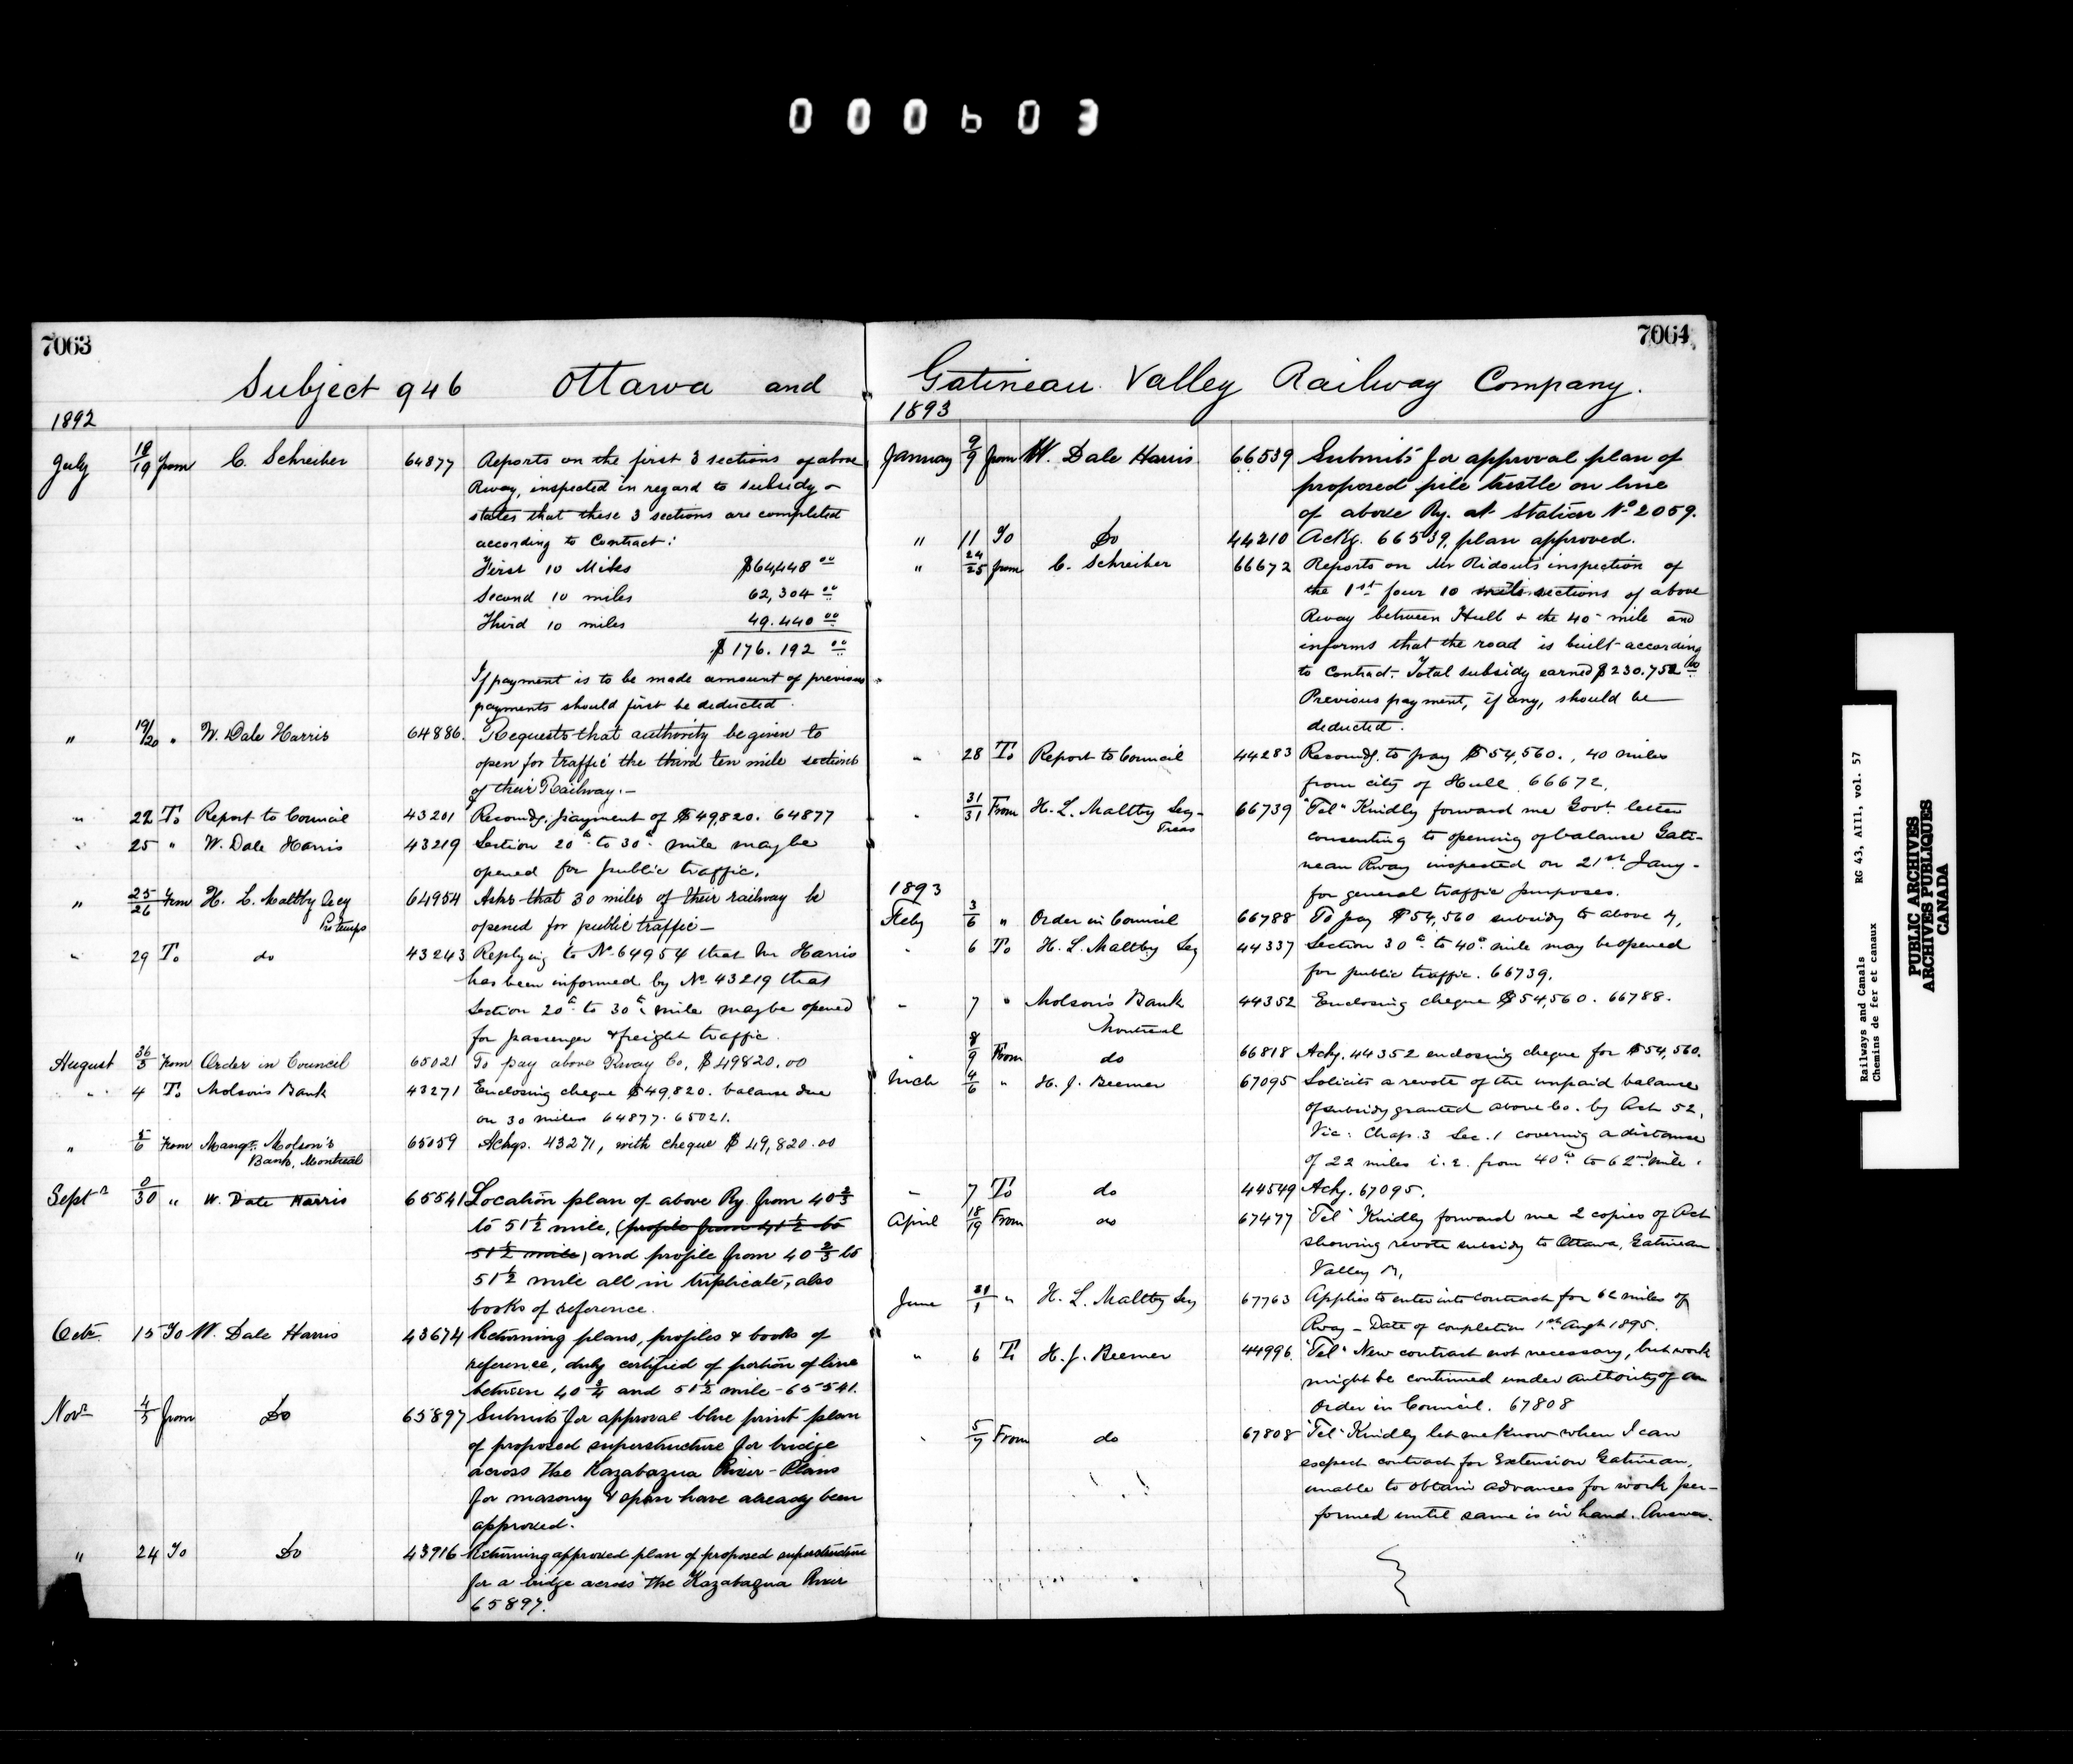 000603
7063
Subject 946 Ottawa and
1892
July 18/19 from C. Schreiber 64877 Reports on the first 3 sections of above
Rway, inspected in regard to subsidy &
states that these 3 sections are completed
according to Contract:
First 10 Miles $64,448 00
Second 10 miles 62,304 00
Third 10 miles 49.440 00
$176.192 00
If payment is to be made amount of previous
payments should first be deducted.
" 19/20 " W. Dale Harris 64886. Requests that authority be given to
open for traffic the third ten mile section
of their Railway.—
" 22 To Report to Council 43201 Recomdg. payment of $49,820. 64877
" 25 " W. Dale Harris 43219 Section 20th to 30th mile may be
opened for public traffic.
" 25/26 From H. L. Maltby Secy 64954 Asks that 30 miles of their railway be
opened for public traffic—
" 29 To do 43243 Replying to No 64954 that Mr Harris
has been informed by No 43219 that
Section 20th to 30th mile may be opened
for passenger & freight traffic.
August From Order in Council 65021 To pay above Rway Co, $49820.00
" 4 To Molson's Bank 43271 Enclosing cheque $49,820. balance due
on 30 miles 64877. 65021.
" 5/6 From Mangr. Molson's 65059 Ackgs. 43271, with cheque $49,820.00
Bank, Montreal
Septr 0/30 " W. Dale Harris 65541 Location plan of above Ry from 40 2/3
to 51 1/2 mile, (profile from 41 1/2 to
51 1/2 mile) and profile from 40 2/3 to
51 1/2 mile all in triplicate, also
books of reference.
Octr. 15 To W. Dale Harris 43674 Returning plans, profiles & books of
reference, duly certified of portion of line
between 40 3/4 and 51 1/2 mile - 65541.
Novr 4/5 from Do 65897 Submits for approval blue print plan
of proposed superstructure for bridge
across the Kazabazua River - Plans
for masonry & span have already been
approved.
" 24 To Do 43916 Returning approved plan of proposed superstructure
for a bridge across the Kazabazua River
65897.
7064
Gatineau Valley Railway Company.
1893
January 9/9 from W. Dale Harris 66539 Submits for approval plan of
proposed pile trestle on line
of above Ry. at Station No 2059.
" 11 To Do 44210 Ackg. 66539, plan approved.
" 24/25 from C. Schreiber 66672 Reports on Mr Ridouts inspection of
the 1st four 10 mile sections of above
Rway between Hull & the 40th mile and
informs that the road is built according
to Contract. Total subsidy earned $230.752 00
Previous payment, if any, should be
deducted.
" 28 To Report to Council 44283 Recomdg. to pay $54,560., 40 miles
from city of Hull 66672.
" 31/31 From H. L. Maltby Secy- 66739 "Tel" Kindly forward me Govt. letter
Treas
consenting to opening of balance Gati-
neau Rway inspected on 21st Jany-
for general traffic purposes.
1893
Feby 3/6 " Order in Council 66788 To pay $54,560 subsidy to above Ry,
" 6 To H. L. Maltby Secy 44337 Section 30th to 40th mile may be opened
for public traffic. 66739.
" 7 " Molson's Bank 44352 Enclosing cheque $54,560. 66788.
Montreal
" 8/9 From do 66818 Ackg. 44352 enclosing cheque for $54,560.
Mch 4/6 " H. J. Beemer 67095 Solicits a revote of the unpaid balance
of subsidy granted above Co. by Act 52,
Vic: Chap. 3 Sec. 1 covering a distance
of 22 miles i.e. from 40th to 62nd mile.
" 7 To do 44549 Ackg. 67095.
April 18/19 From do 67477 "Tel" Kindly forward me 2 copies of Act
showing revote subsidy to Ottawa, Gatineau
Valley Ry,
June 31/1 " H. L. Maltby Secy 67763 Applies to enter into contract for 62 miles of
Rway - Date of completion 1st Augt 1895.
" 6 To H. J. Beemer 44996. "Tel" New contract not necessary, but work
might be continued under authority of an
Order in Council. 67808
" 5/7 From do 67808 "Tel" Kindly let me know when I can
expect contract for Extension Gatineau,
unable to obtain advances for work per-
formed until same is in hand. Answer.
Railways and Canals RG 43, AIII, vol. 57
Chemins de fer et canaux
PUBLIC ARCHIVES
ARCHIVES PUBLIQUES
CANADA